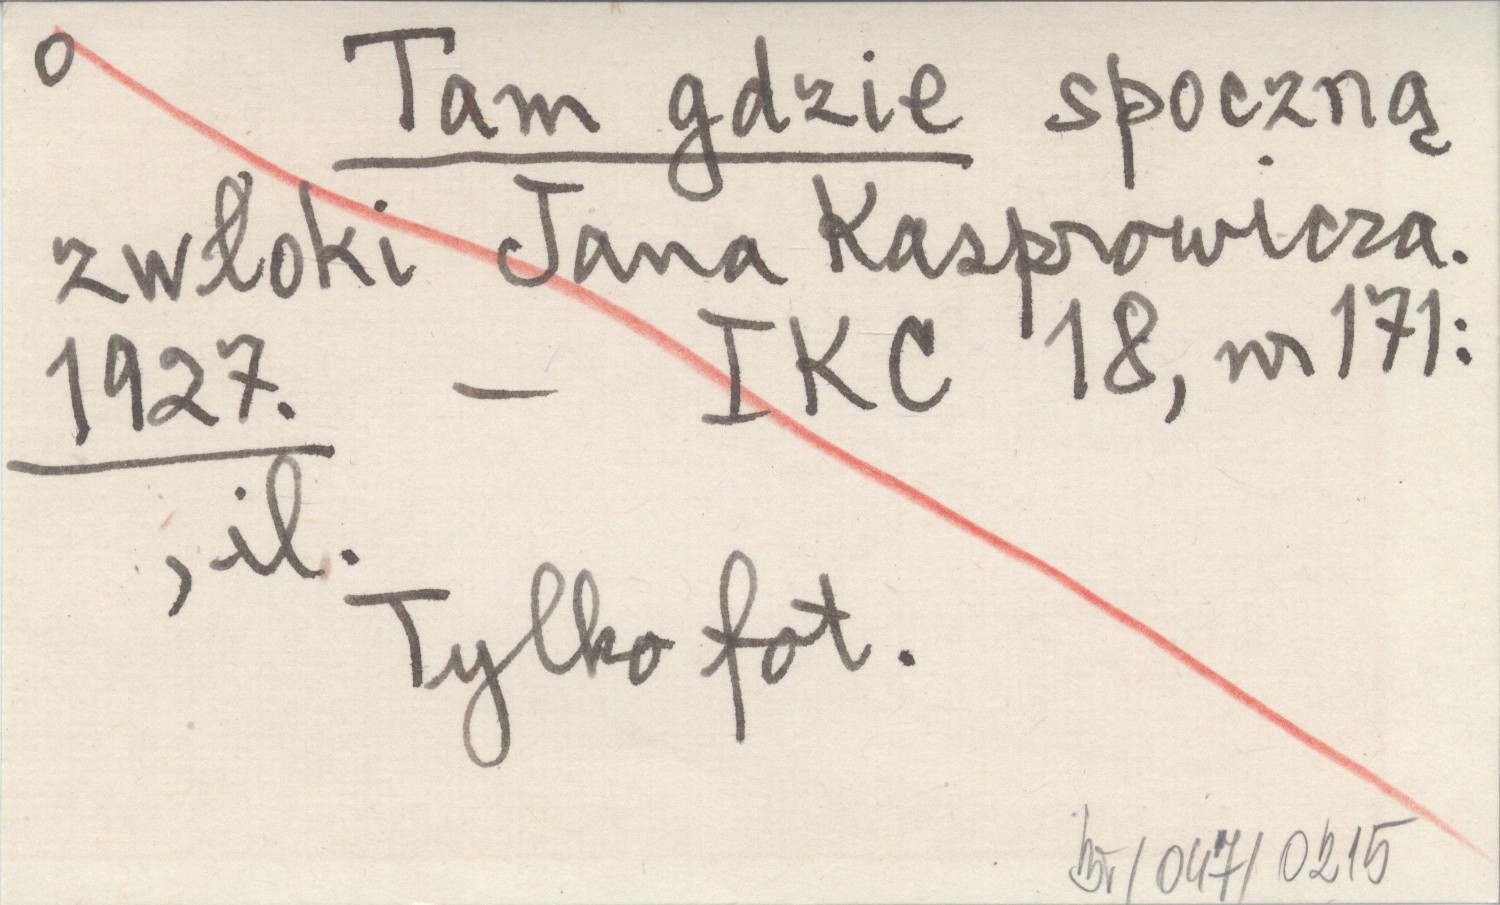 o Tam gdzie spoczną
zwłoki Jana Kasprowicza.
1927. – IKC 18, nr 171:
, il.
Tylko fot.
/047/0215